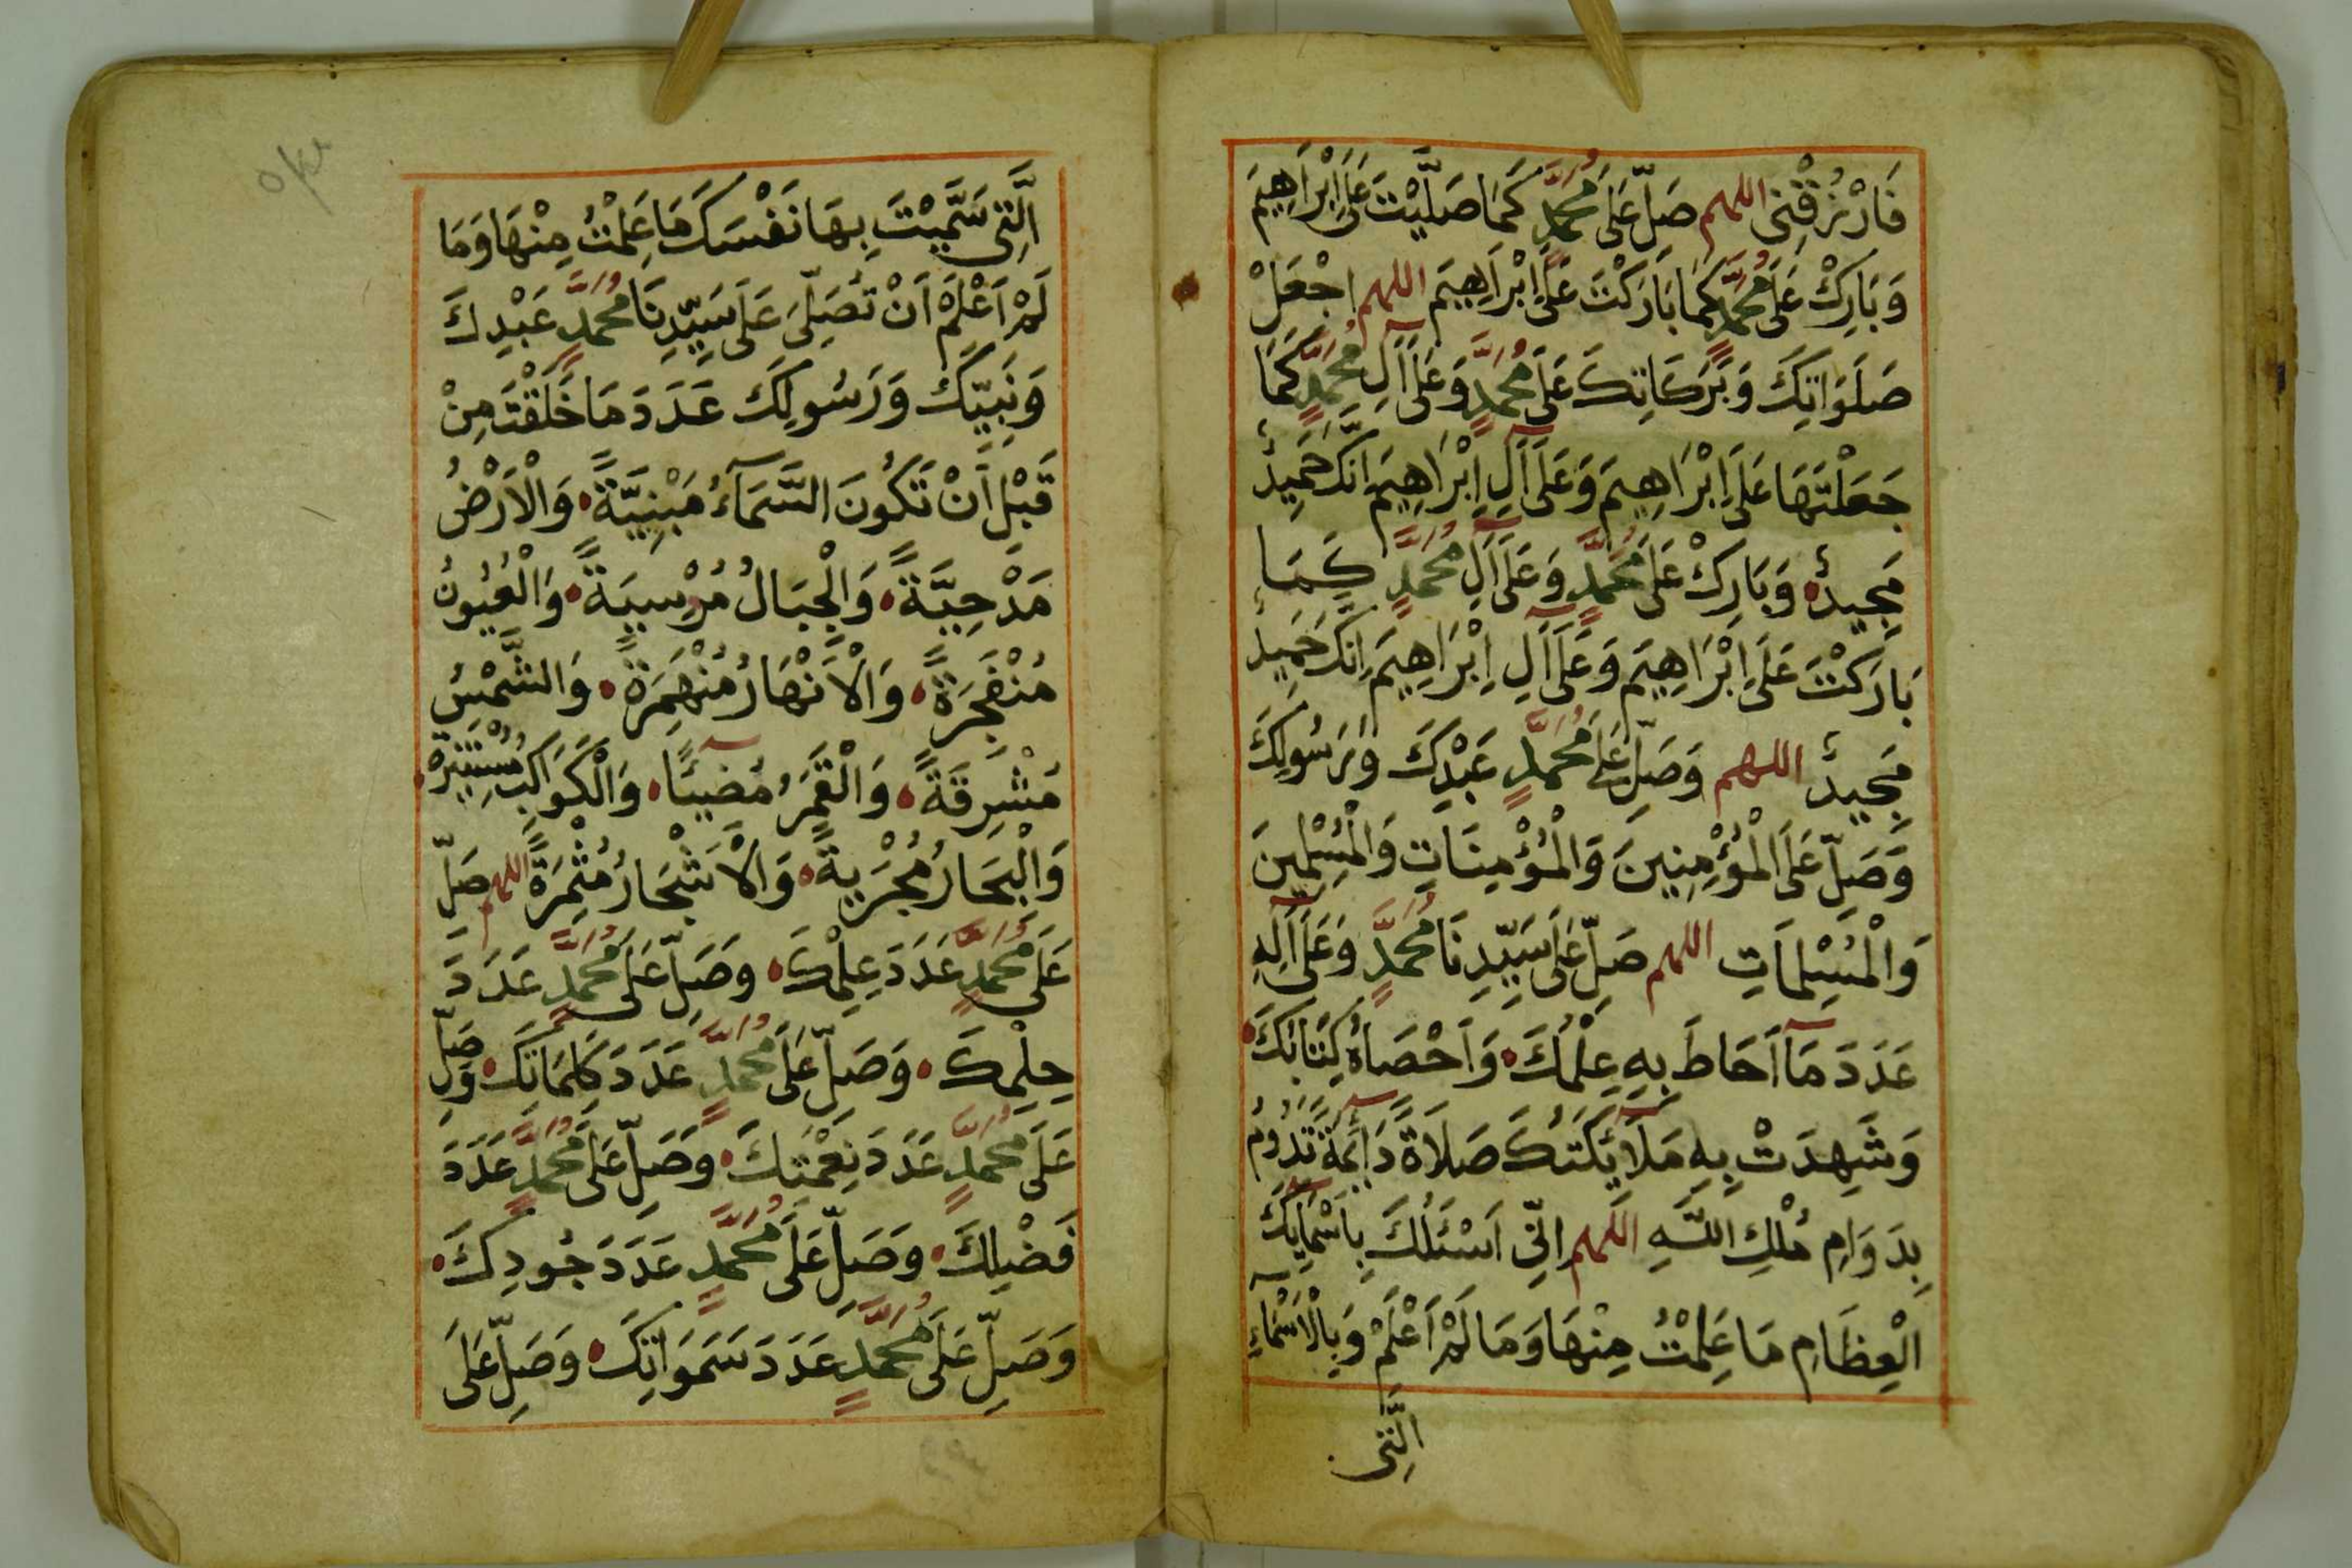 فَارْزُقْنِى اللهم صَلِّ عَلَى مُحَمَّدٍ كَمَا صَلَّيْتَ عَلَى اِبْرَاهِيمَ
وَبَارِكْ عَلَى مُحَمَّدٍ كَمَا بَارَكْتَ عَلَى اِبْرَاهِيمَ اللهم اجْعَلْ
صَلَوَاتِكَ وَبَرَكَاتِكَ عَلَى مُحَمَّدٍ وَعَلَى آلِ مُحَمَّدٍ كَمَا
جَعَلْتَهَا عَلَى اِبْرَاهِيمَ وَعَلَى آلِ اِبْرَاهِيمَ اِنَّكَ حَمِيدٌ
مَجِيدٌ وَبَارِكْ عَلَى مُحَمَّدٍ وَعَلَى آلِ مُحَمَّدٍ كَمَا
بَارَكْتَ عَلَى اِبْرَاهِيمَ وَعَلَى آلِ اِبْرَاهِيمَ اِنَّكَ حَمِيدٌ
مَجِيدٌ اللهم وَصَلِّ عَلَى مُحَمَّدٍ عَبْدِكَ وَرَسُولِكَ
وَصَلِّ عَلَى الْمُؤْمِنِينَ وَالْمُؤْمِنَاتِ وَالْمُسْلِمِينَ
وَالْمُسْلِمَاتِ اللهم صَلِّ عَلَى سَيِّدِنَا مُحَمَّدٍ وَعَلَى آلِهِ
عَدَدَ مَآ اَحَاطَ بِهِ عِلْمُكَ وَاَحْصَاهُ كِتَابُكَ
وَشَهِدَتْ بِهِ مَلَآئِكَتُكَ صَلَاةً دَآئِمَةً تَدُومُ
بِدَوَامِ مُلْكِ اللّٰهِ اللهم اِنِّى اَسْئَلُكَ بِاَسْمَآئِكَ
الْعِظَامِ مَا عَلِمْتُ مِنْهَا وَمَا لَمْ اَعْلَمْ وَبِالْاَسْمَآءِ
الَّتِى
الَّتِى سَمَّيْتَ بِهَا نَفْسَكَ مَا عَلِمْتُ مِنْهَا وَمَا
لَمْ اَعْلَمْ اَنْ تُصَلِّىَ عَلَى سَيِّدِنَا مُحَمَّدٍ عَبْدِكَ
وَنَبِيِّكَ وَرَسُولِكَ عَدَدَ مَا خَلَقْتَ مِنْ
قَبْلِ اَنْ تَكُونَ السَّمَآءُ مَبْنِيَّةً وَالْاَرْضُ
مَدْحِيَّةً وَالْجِبَالُ مُرْسِيَةً وَالْعُيُونُ
مُنْفَجِرَةً وَالْاَنْهَارُ مُنْهَمِرَةً وَالشَّمْسُ
مُشْرِقَةً وَالْقَمَرُ مُضِيئًا وَالْكَوَاكِبُ مُسْتَنِيرَةً
وَالْبِحَارُ مُجْرِيَةً وَالْاَشْجَارُ مُثْمِرَةً اللهم صَلِّ
عَلَى مُحَمَّدٍ عَدَدَ عِلْمِكَ وَصَلِّ عَلَى مُحَمَّدٍ عَدَدَ
حِلْمِكَ وَصَلِّ عَلَى مُحَمَّدٍ عَدَدَ كَلِمَاتِكَ وَصَلِّ
عَلَى مُحَمَّدٍ عَدَدَ نِعْمَتِكَ وَصَلِّ عَلَى مُحَمَّدٍ عَدَدَ
فَضْلِكَ وَصَلِّ عَلَى مُحَمَّدٍ عَدَدَ جُودِكَ
وَصَلِّ عَلَى مُحَمَّدٍ عَدَدَ سَمَوَاتِكَ وَصَلِّ عَلَى